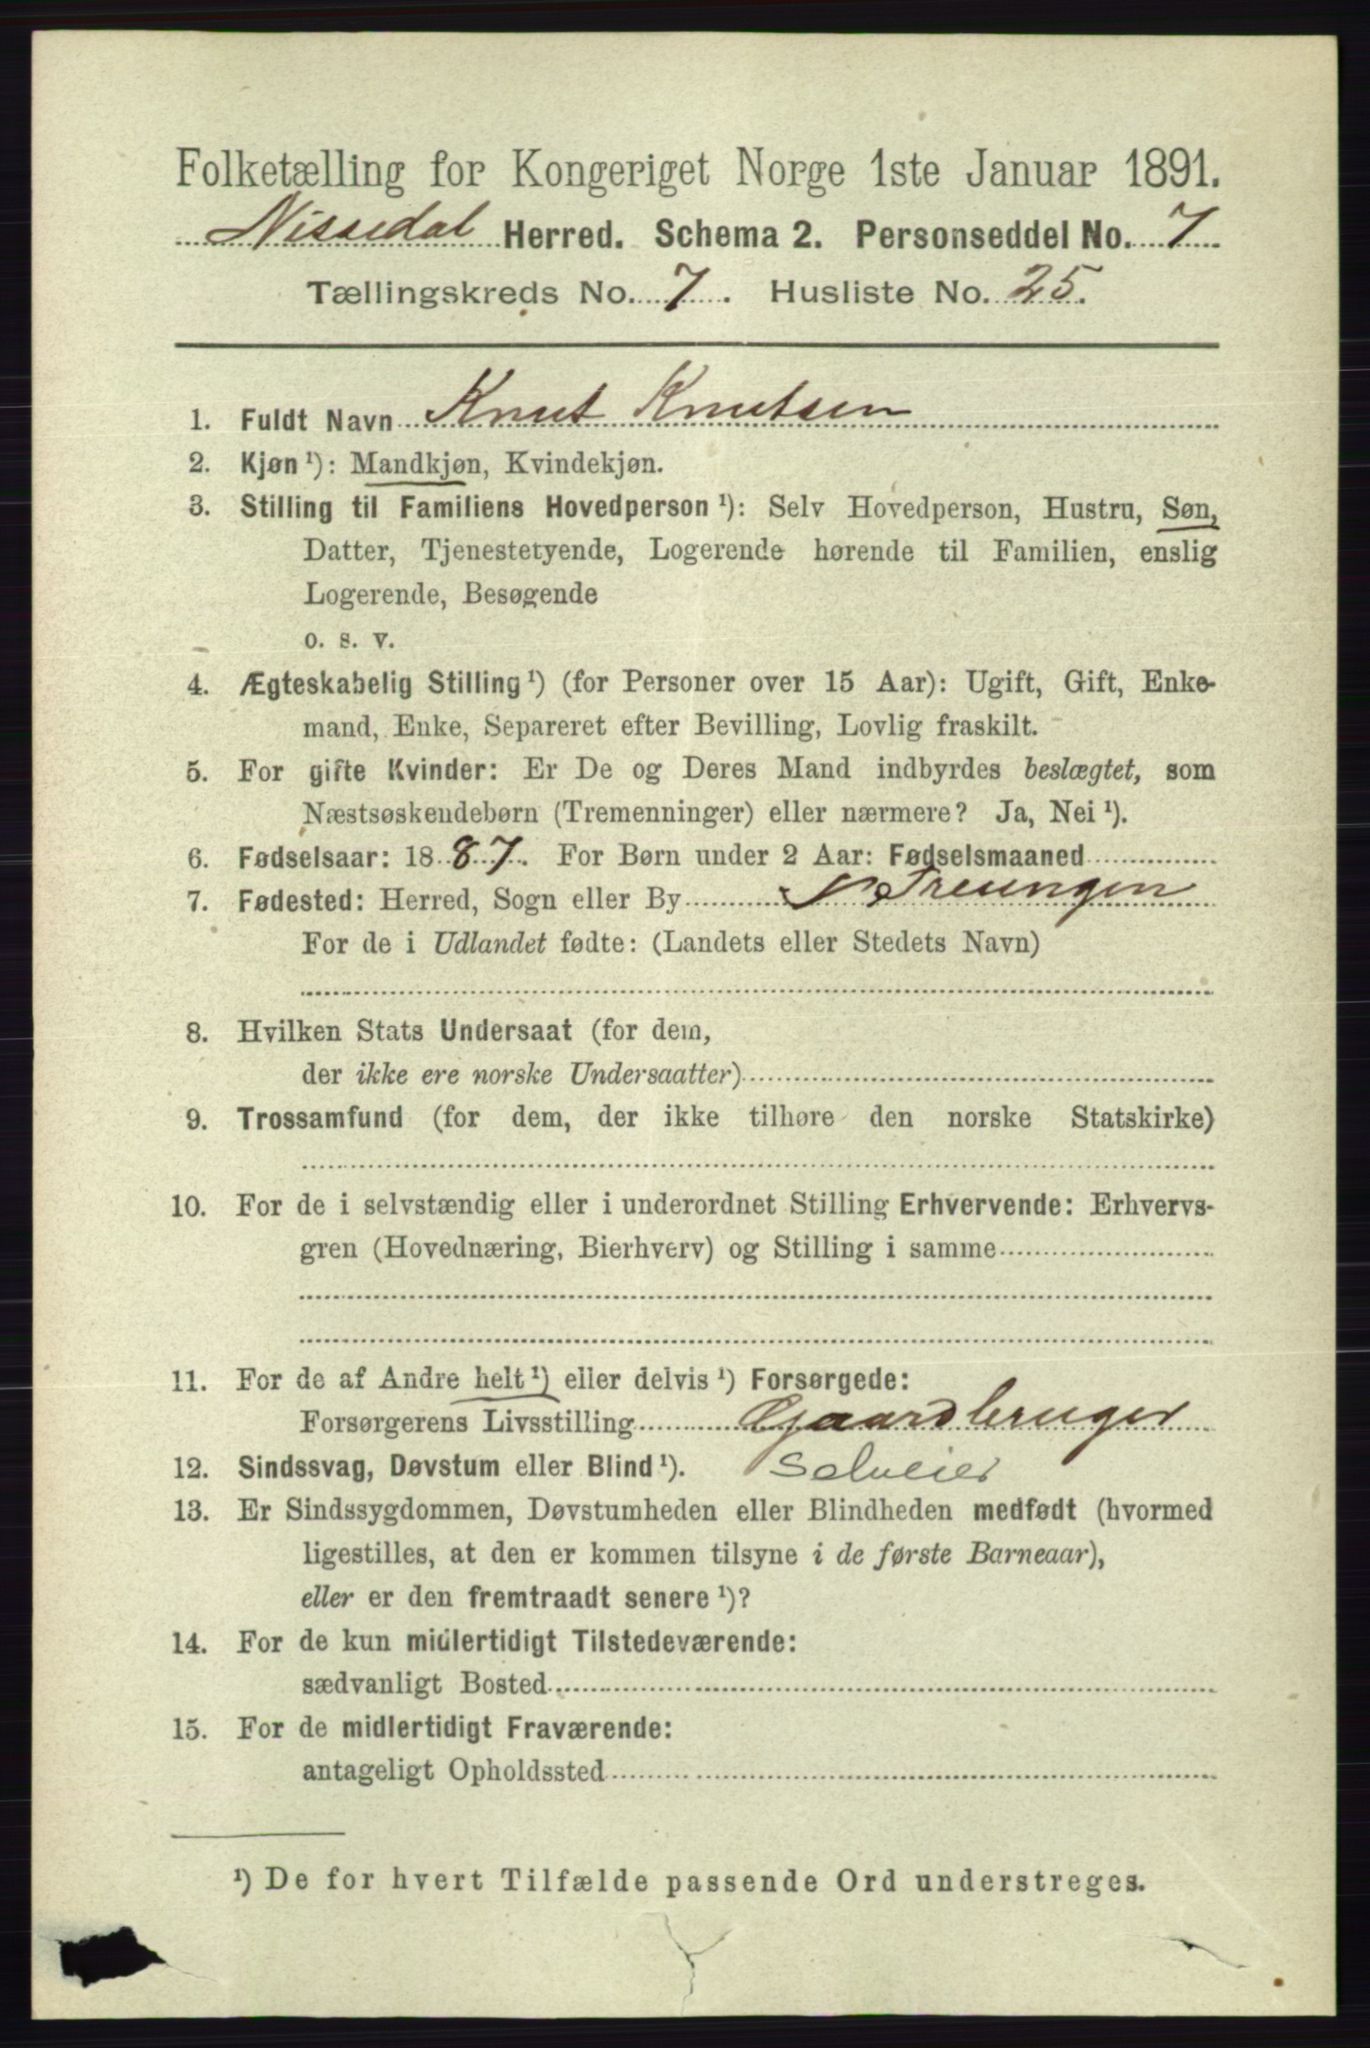 Folketælling for Kongeriget Norge 1ste Januar 1891.
Nissedal Herred. Schema 2. Personseddel No. 7
Tællingskreds No. 7. Husliste No. 25.
1. Fuldt Navn Knut Knutsen
2. Kjøn ¹): Mandkjøn, Kvindekjøn.
3. Stilling til Familiens Hovedperson ¹): Selv Hovedperson, Hustru, Søn,
Datter, Tjenestetyende, Logerende hørende til Familien, enslig
Logerende, Besøgende
o. s. v.
4. Ægteskabelig Stilling ¹) (for Personer over 15 Aar): Ugift, Gift, Enke-
mand, Enke, Separeret efter Bevilling, Lovlig fraskilt.
5. For gifte Kvinder: Er De og Deres Mand indbyrdes beslægtet, som
Næstsøskendebørn (Tremenninger) eller nærmere? Ja, Nei ¹).
6. Fødselsaar: 1887. For Børn under 2 Aar: Fødselsmaaned
7. Fødested: Herred, Sogn eller By Treungen
For de i Udlandet fødte: (Landets eller Stedets Navn)
8. Hvilken Stats Undersaat (for dem,
der ikke ere norske Undersaatter)
9. Trossamfund (for dem, der ikke tilhøre den norske Statskirke)
10. For de i selvstændig eller i underordnet Stilling Erhvervende: Erhvervs-
gren (Hovednæring, Bierhverv) og Stilling i samme
11. For de af Andre helt ¹) eller delvis ¹) Forsørgede:
Forsørgerens Livsstilling Gaardbruger
12. Sindssvag, Døvstum eller Blind ¹). Selveier
13. Er Sindssygdommen, Døvstumheden eller Blindheden medfødt (hvormed
ligestilles, at den er kommen tilsyne i de første Barneaar),
eller er den fremtraadt senere ¹)?
14. For de kun midlertidigt Tilstedeværende:
sædvanligt Bosted
15. For de midlertidigt Fraværende:
antageligt Opholdssted
¹) De for hvert Tilfælde passende Ord understreges.